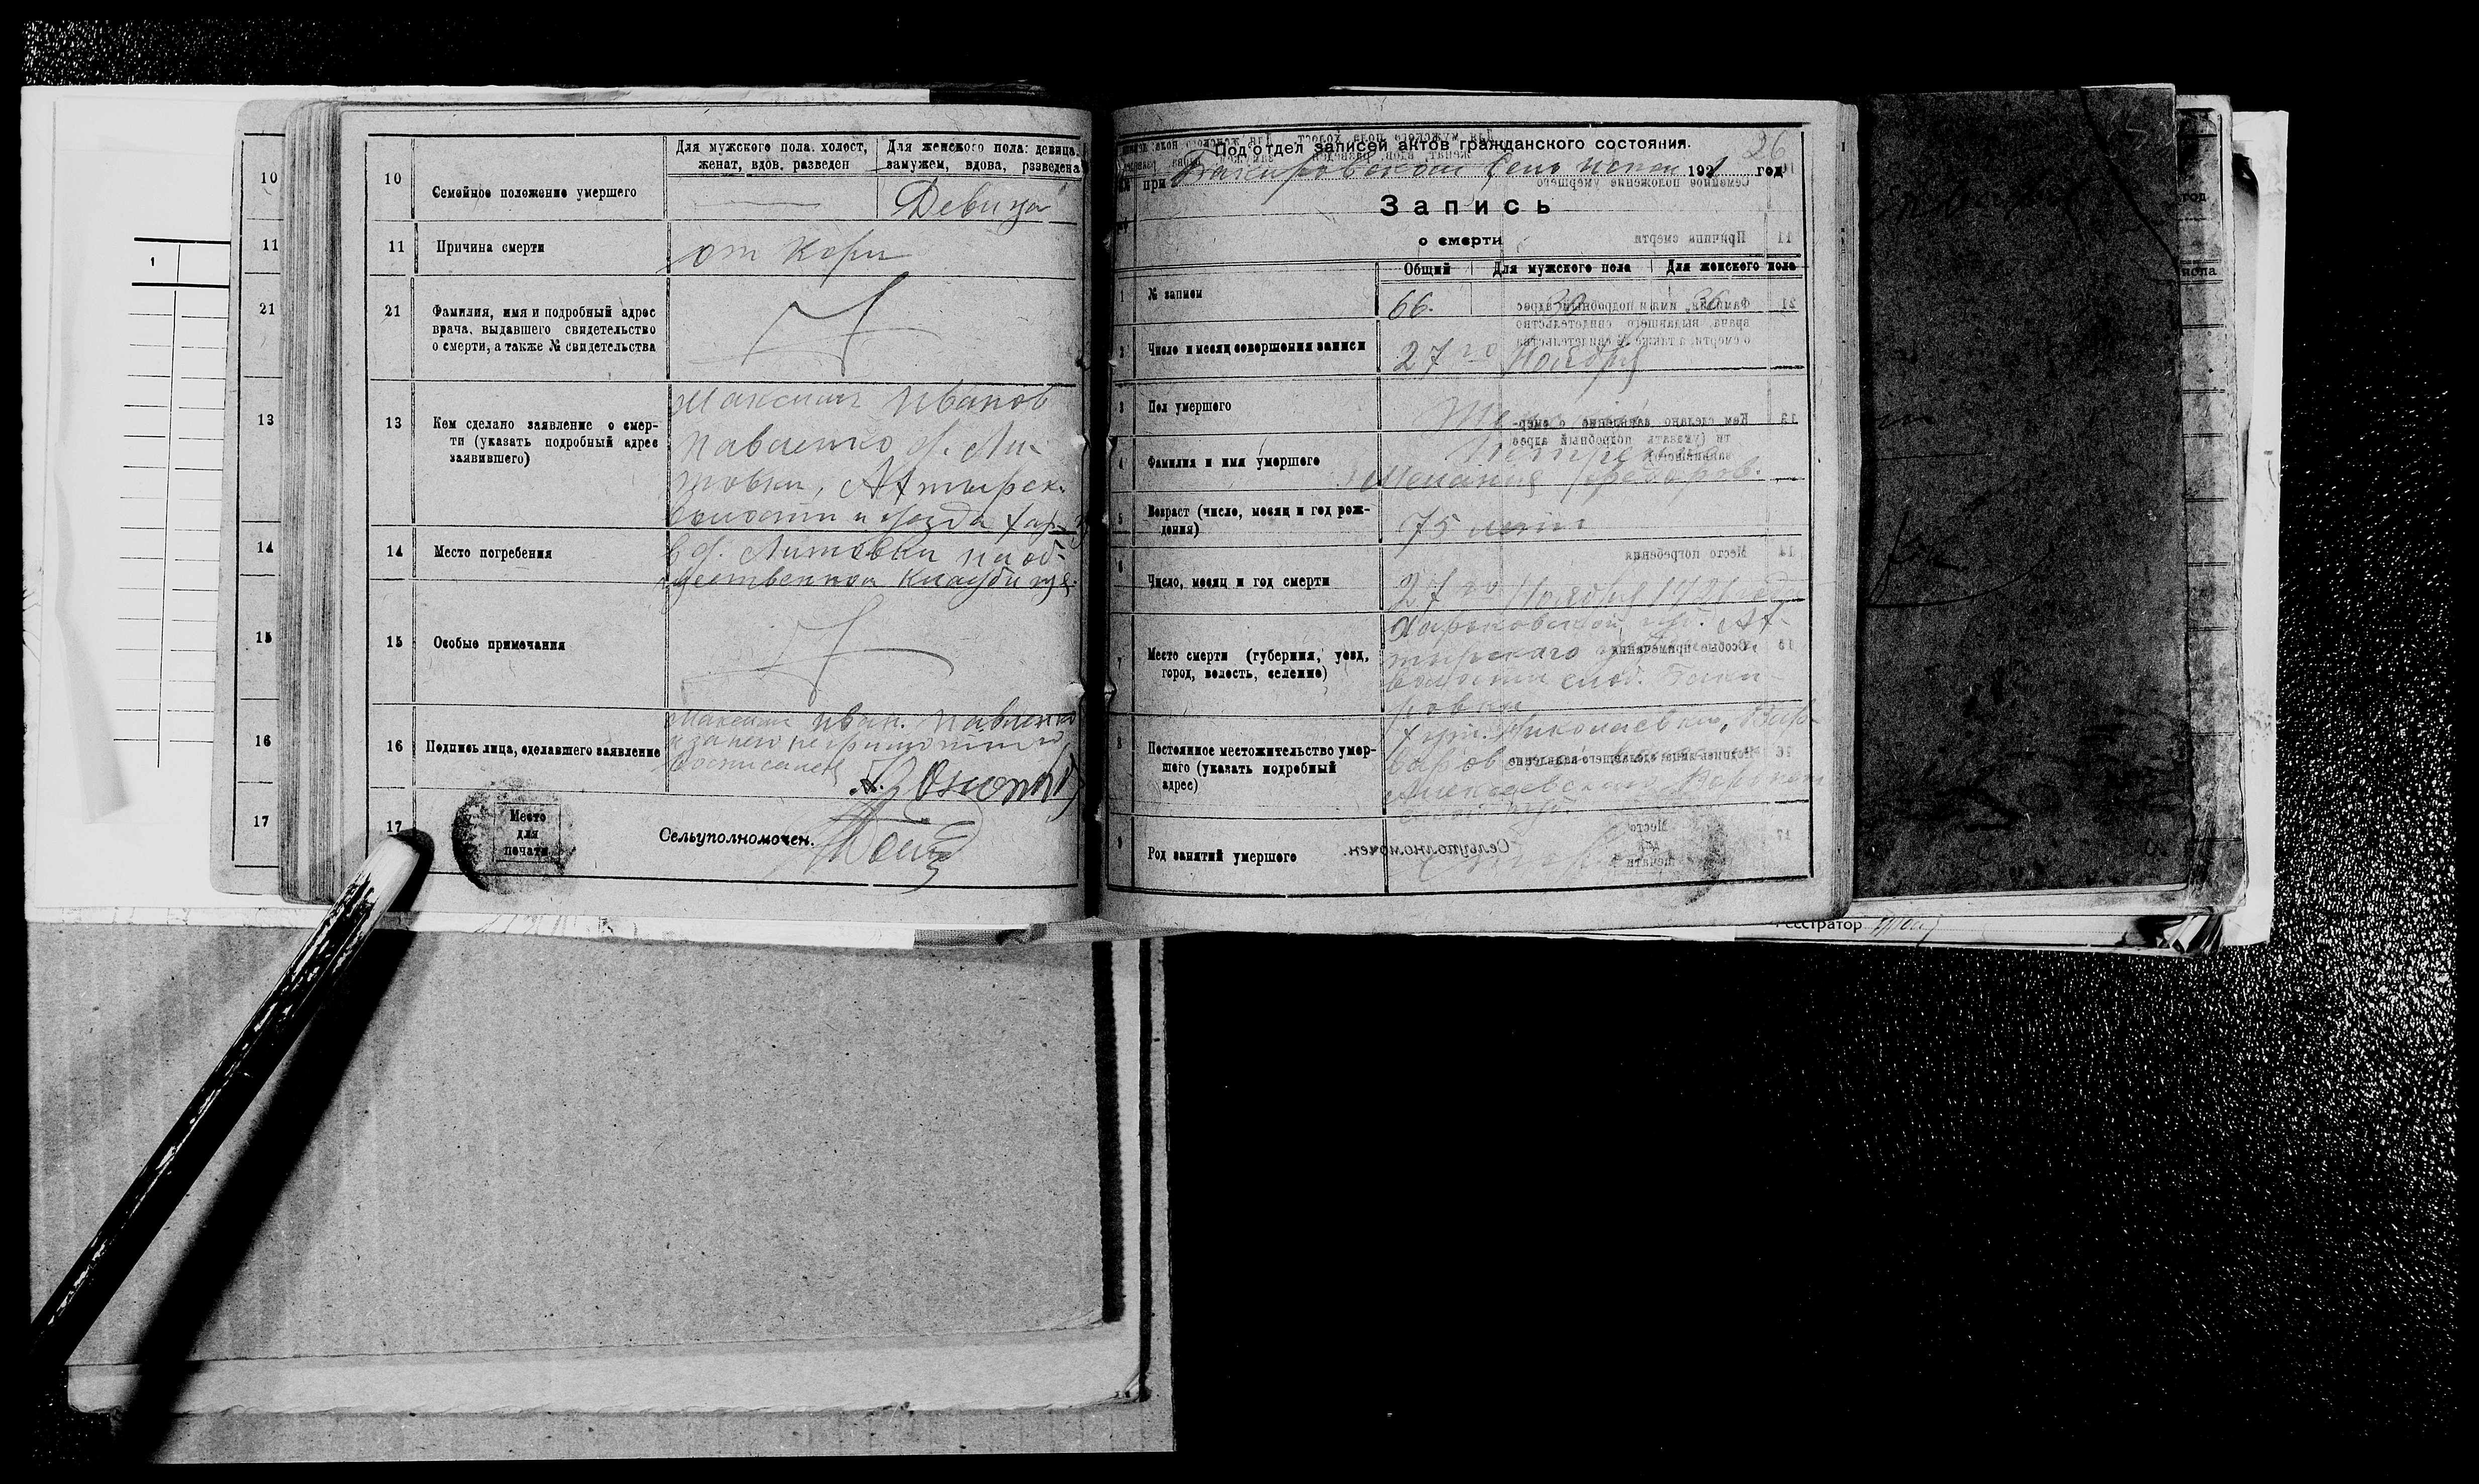 10
11
21
13
14
15
16
17
1
Для мужского пола: холост,
женат, вдов, разведен
Для женского пола: девица,
замужем, вдова, разведена
10
Семейное положение умершего
Девица
11
Причина смерти
от Кори
21
Фамилия, имя и подробный адрес
врача, выдавшего свидетельство
о смерти, а также № свидетельства
13
Кем сделано заявление о смер-
ти (указать подробный адрес
заявившего)
Максим Иванов
Павленко д. Ли-
товки, Ахтырск.
волости и уезда Хар
14
Место погребения
в д. Литовки на об-
щественном кладбище.
15
Особые примечания
16
Подпись лица, сделавшего заявление
Максим Иван. Павленко
а за него неграмотного
росписался
17
Место
для
печати
Сельуполномочен.
26
Подотдел записей актов гражданского состояния.
при Бакировском Сель исполк 1921 год
Запись
о смерти
Общий
Для мужского пола
Для женского пола
1
№ записи
66.
30
36
2
Число и месяц совершения записи
27го Ноября
3
Пол умершего
4
Фамилия и имя умершего
Мелания Федоров.
5
Возраст (число, месяц и год рож-
дения)
75 лет
6
Число, месяц и год смерти
27го Ноября 1921 года
7
Место смерти (губерния, уезд,
город, волость, селение)
Харьковской губ. Ах-
тырскаго
волости слоб. Баки-
ровки
8
Постоянное местожительство умер-
шего (указать подробный
адрес)
хут. Николаевка, Вар-
варов
9
Род занятий умершего
гистратор